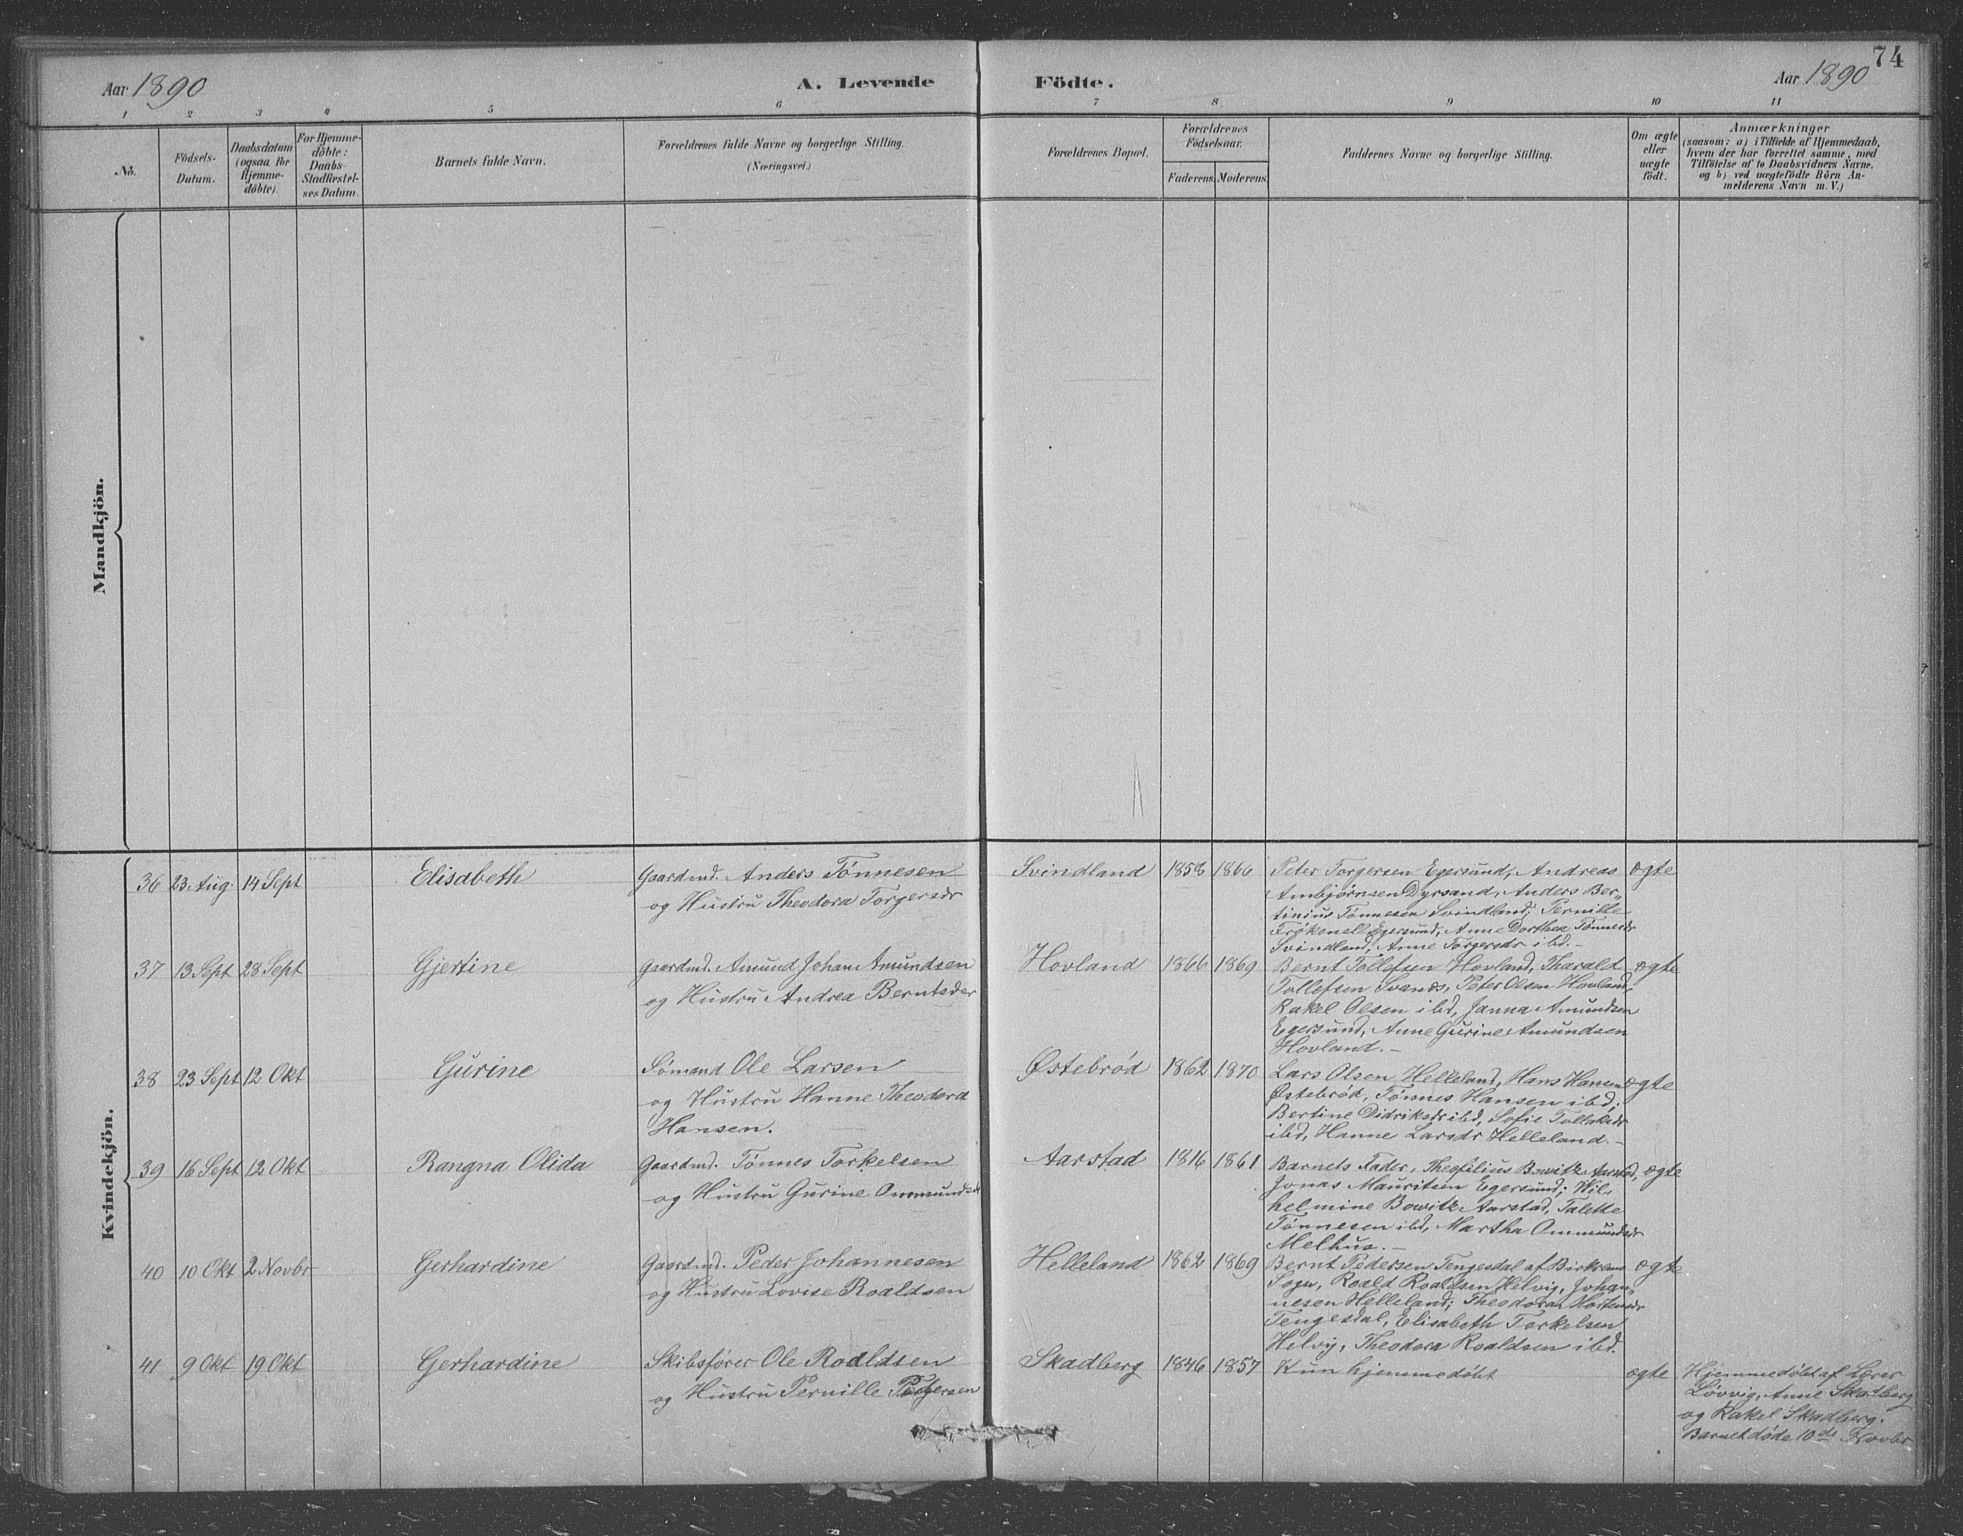 74
Aar 1890
A. Levende
Födte.
Aar 1890
1 2 3 4 5 6 7 8 9 10 11
No.
Födsels-
Datum.
Daabsdatum
(ogsaa for
Hjemme-
döbte).
For Hjemme-
döbte:
Daabs-
Stadfæstel-
ses Datum.
Barnets fulde Navn.
Forældrenes fulde Navne og borgerlige Stilling.
(Næringsvei.)
Forældrenes Bopæl.
Forældrenes
Födselsaar.
Faderens. Moderens.
Faddernes Navne og borgerlige Stilling.
Om ægte
eller
uægte
födt.
Anmærkninger
(saasom: a) i Tilfælde af Hjemmedaab,
hvem der har forrettet samme, med
Tilföielse af to Daabsvidners Navne.
og b) ved uægtefödte Börn An-
melderens Navn m. V.)
Mandkjön.
Kvindekjön.
36 23 Aug. 14 Sept
Elisabeth
Gaardmd. Anders Tønnesen
og Hustru Theodora Torgersdr
Svindland
1858 1866
Peter Torgersen Egersund, Andreas
Ambjørnsen Dyrsand, Anders Ber-
tinius Tønnesen Svindland; Pernille
Frøkenell Egersund, Anne Dorthea Tønnesdr
Svindland, Anne Torgersdr ibd.-
ægte
37 13 Sept 28 Sept
Gjertine
Gaardmd. Amund Johan Amundsen
og Hustru Andrea Berntsdr
Hovland
1866 1869
Bernt Tollefsen Hovland, Tharald
Tollefsen Svanes, Peter Olsen Hovland,
Rakel Olsen ibd, Janna Amundsen
Egersund, Anne Gurine Amundsen
Hovland.-
ægte
38 23 Sept 12 Okt
Gurine
Sømand Ole Larsen
og Hustru Hanne Theodora
Hansen.
Østebrød
1862 1870
Lars Olsen Helleland, Hans Hansen
Østebrød, Tønnes Hansen ibd;
Bertine Didriksdr ibd, Sofie Tolleksdr
ibd, Hanne Larsdr Helleland.-
ægte
39 16 Sept 12 Okt
Rangna Olida
Gaardmd. Tønnes Torkelsen
og Hustru Gurine Ommundsdr
Aarstad
1816 1861
Barnets Fader, Theofilius Bowitz Aarstad,
Jonas Mauritsen Egersund; Wil-
helmine Bowitz Aarstad, Talette
Tønnesen ibd, Martha Ommundsdr
Melhus.-
ægte
40 10 Okt 2 Novbr
Gerhardine
Gaardmd. Peder Johannesen
og Hustru Lovise Roaldsen
Helleland
1862 1869
Bernt Pedersen Tengesdal af Birkrem
Sogn, Roald Roaldsen Helvig, Johan-
nesen Helleland; Theodora Mortensdr
Tengesdal, Elisabeth Torkelsen
Helvig, Theodora Roaldsen ibd.
ægte
41 9 Okt 19 Okt
Gerhardine
Skibsfører Ole Roaldsen
og Hustru Pernille
Skadberg
1846 1857
Kun hjemmedøbt
ægte
Hjemmedøbt af Lærer
Løvvig, Anne Skadberg
og Rakel Skadberg.
Barnet døde 10de Novbr